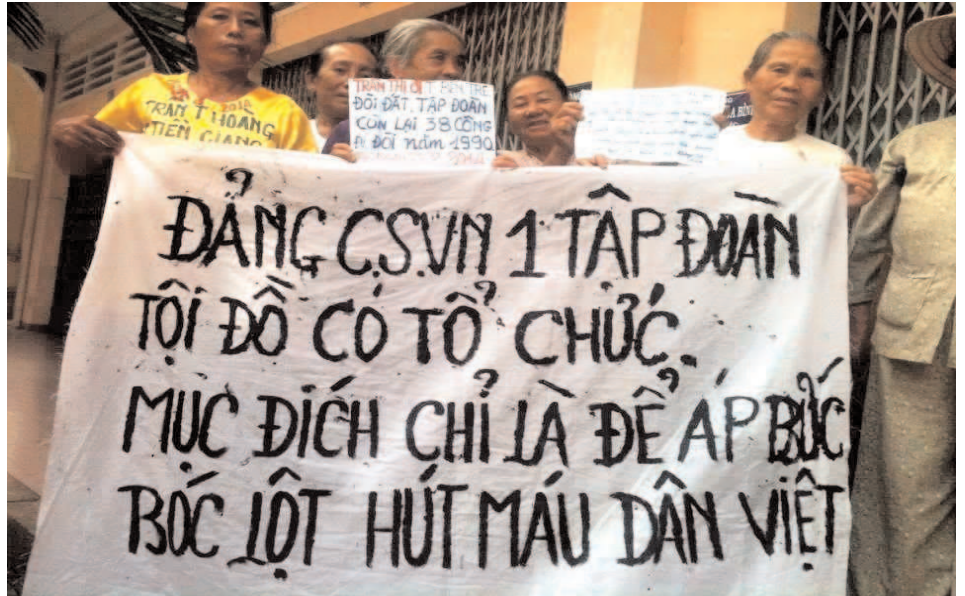 2014
TRẦN T HOÀNG
TIỀN GIANG
TRẦN THỊ ỢI T BẾN TRE
ĐÒI ĐẤT, TẬP ĐOÀN
CÒN LẠI 38 CÔNG
ĐI ĐÒI năm 1990
2014
ĐẢNG C.S.VN 1 TẬP ĐOÀN
TỘI ĐỒ CÓ TỔ CHỨC.
MỤC ĐÍCH CHỈ LÀ ĐỂ ÁP BỨC
BÓC LỘT HÚT MÁU DÂN VIỆT